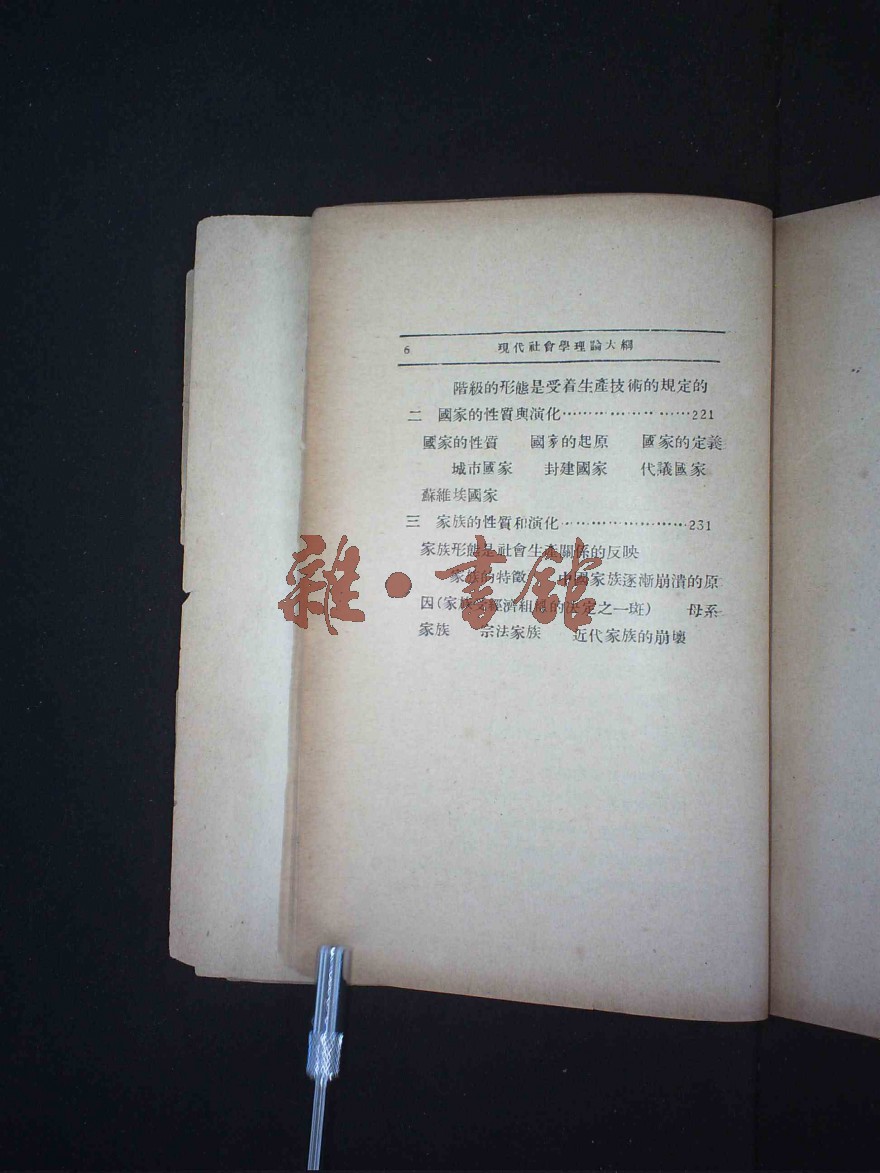 6 現代社會學理論大綱
階級的形態是受着生產技術的規定的
二 國家的性質與演化……………………221
國家的性質 國家的起原 國家的定義
城市國家 封建國家 代議國家
蘇維埃國家
三 家族的性質和演化……………………231
家族形態是社會生產關係的反映
家族的特徵 中國家族逐漸崩潰的原
因(家族受經濟組織的決定之一斑) 母系
家族 宗法家族 近代家族的崩壞
雜·書館